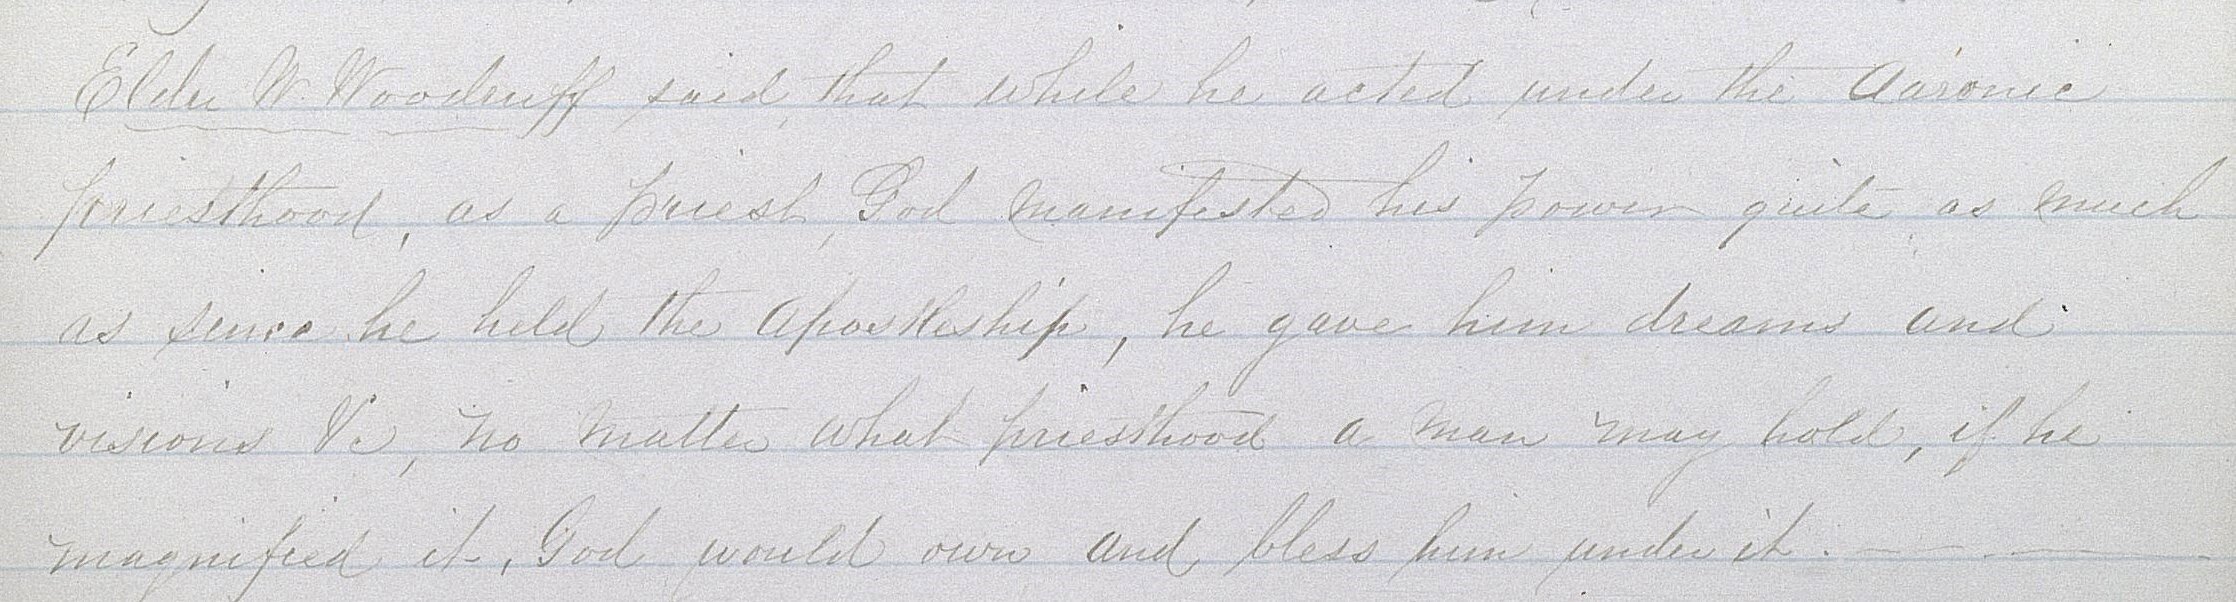 Elder W. Woodruff said, that while he acted under the Aaronic
priesthood, as a priest, God manifested his power quite as much
as since he held the Apostleship, he gave him dreams and
visions &c, no matter what priesthood a man may hold, if he
magnified it, God would own and bless him under it. — — —